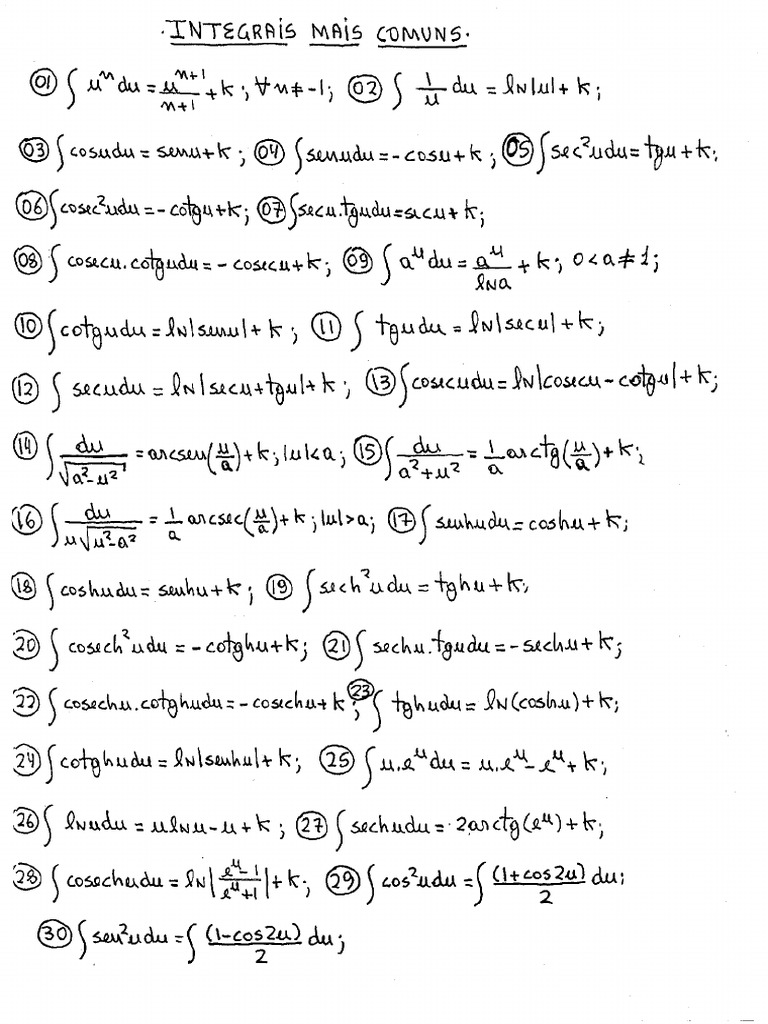 . INTEGRAIS MAIS COMUNS.
01 ∫ uⁿ du = uⁿ⁺¹/(n+1) + k ; ∀ n ≠ -1 ; 02 ∫ 1/u du = lN|u| + k ;
03 ∫ cosudu = senu + k ; 04 ∫ senudu = -cosu + k ; 05 ∫ sec²udu = tgu + k ;
06 ∫ cosec²udu = -cotgu + k ; 07 ∫ secu.tgudu = secu + k ;
08 ∫ cosecu.cotgudu = -cosecu + k ; 09 ∫ aᵘ du = aᵘ/lNa + k ; 0 < a ≠ 1 ;
10 ∫ cotgudu = lN|senu| + k ; 11 ∫ tgudu = lN|secu| + k ;
12 ∫ secudu = lN|secu + tgu| + k ; 13 ∫ cosecudu = lN|cosecu - cotgu| + k ;
14 ∫ du/√(a²-u²) = arcsen(u/a) + k ; |u| < a ; 15 ∫ du/(a²+u²) = 1/a arctg(u/a) + k ;
16 ∫ du/(u√(u²-a²)) = 1/a arcsec(u/a) + k ; |u| > a ; 17 ∫ senhudu = coshu + k ;
18 ∫ coshudu = senhu + k ; 19 ∫ sech²udu = tghu + k ;
20 ∫ cosech²udu = -cotghu + k ; 21 ∫ sechu.tgudu = -sechu + k ;
22 ∫ cosechu.cotghudu = -cosechu + k ; 23 ∫ tghudu = lN(coshu) + k ;
24 ∫ cotghudu = lN|senhu| + k ; 25 ∫ u.eᵘ du = u.eᵘ - eᵘ + k ;
26 ∫ lNudu = ulNu - u + k ; 27 ∫ sechudu = 2arctg(eᵘ) + k ;
28 ∫ cosechudu = lN|(eᵘ-1)/(eᵘ+1)| + k ; 29 ∫ cos²udu = ∫ (1+cos2u)/2 du ;
30 ∫ sen²udu = ∫ (1-cos2u)/2 du ;